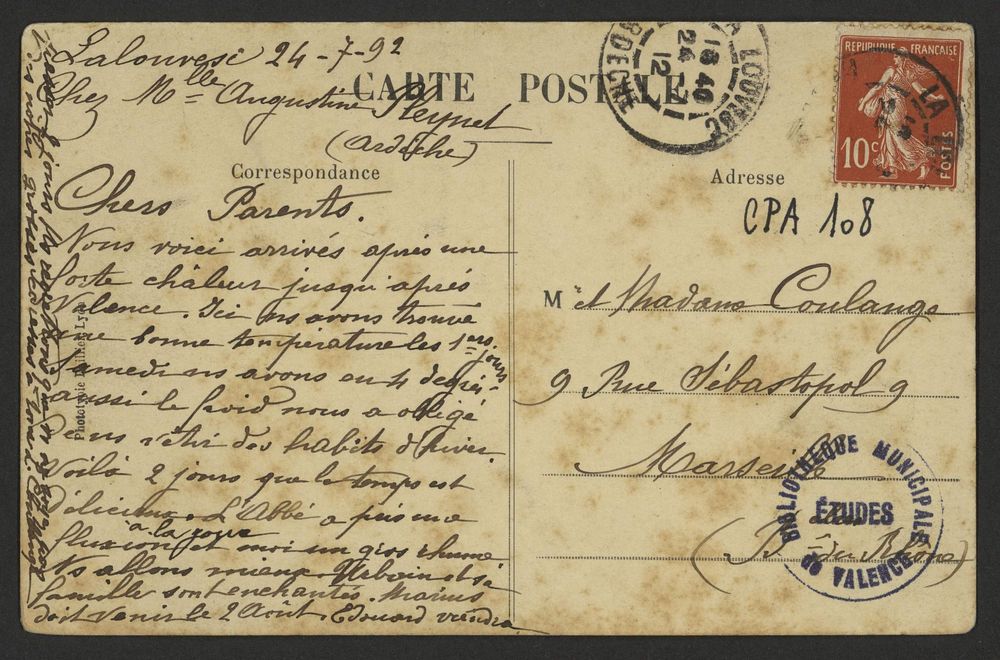 Lalouvesc 24-7-92
CARTE POSTALE
Chez Mlle Augustine Pleynet
(Ardèche)
Correspondance
Chers Parents.
Nous voici arrivés après une
forte châleur jusqu'après
Valence. Ici ns avons trouvé
une bonne température les 1ers jours
Samedi ns avons eu 4 degrés
aussi le froid nous a obligé
de ns vêtir des habits d'hiver.
Voilà 2 jours que le temps est
délicieux. L'Abbé a pris une
fluxion à la joue et moi un gros rhume
Ns allons mieux. Urbain et sa
famille sont enchantés. Marius
doit venir le 2 Août. Edouard viendra
Phototypie
LA LOUVESC
ARDECHE
18 40
24 -7
12
REPUBLIQUE FRANÇAISE
10c
POSTES
LA
Adresse
CPA 108
Mr et Madame Coulange
9 Rue Sébastopol 9
Marseille
(B. du Rhône)
BIBLIOTHÈQUE MUNICIPALE
ÉTUDES
de VALENCE